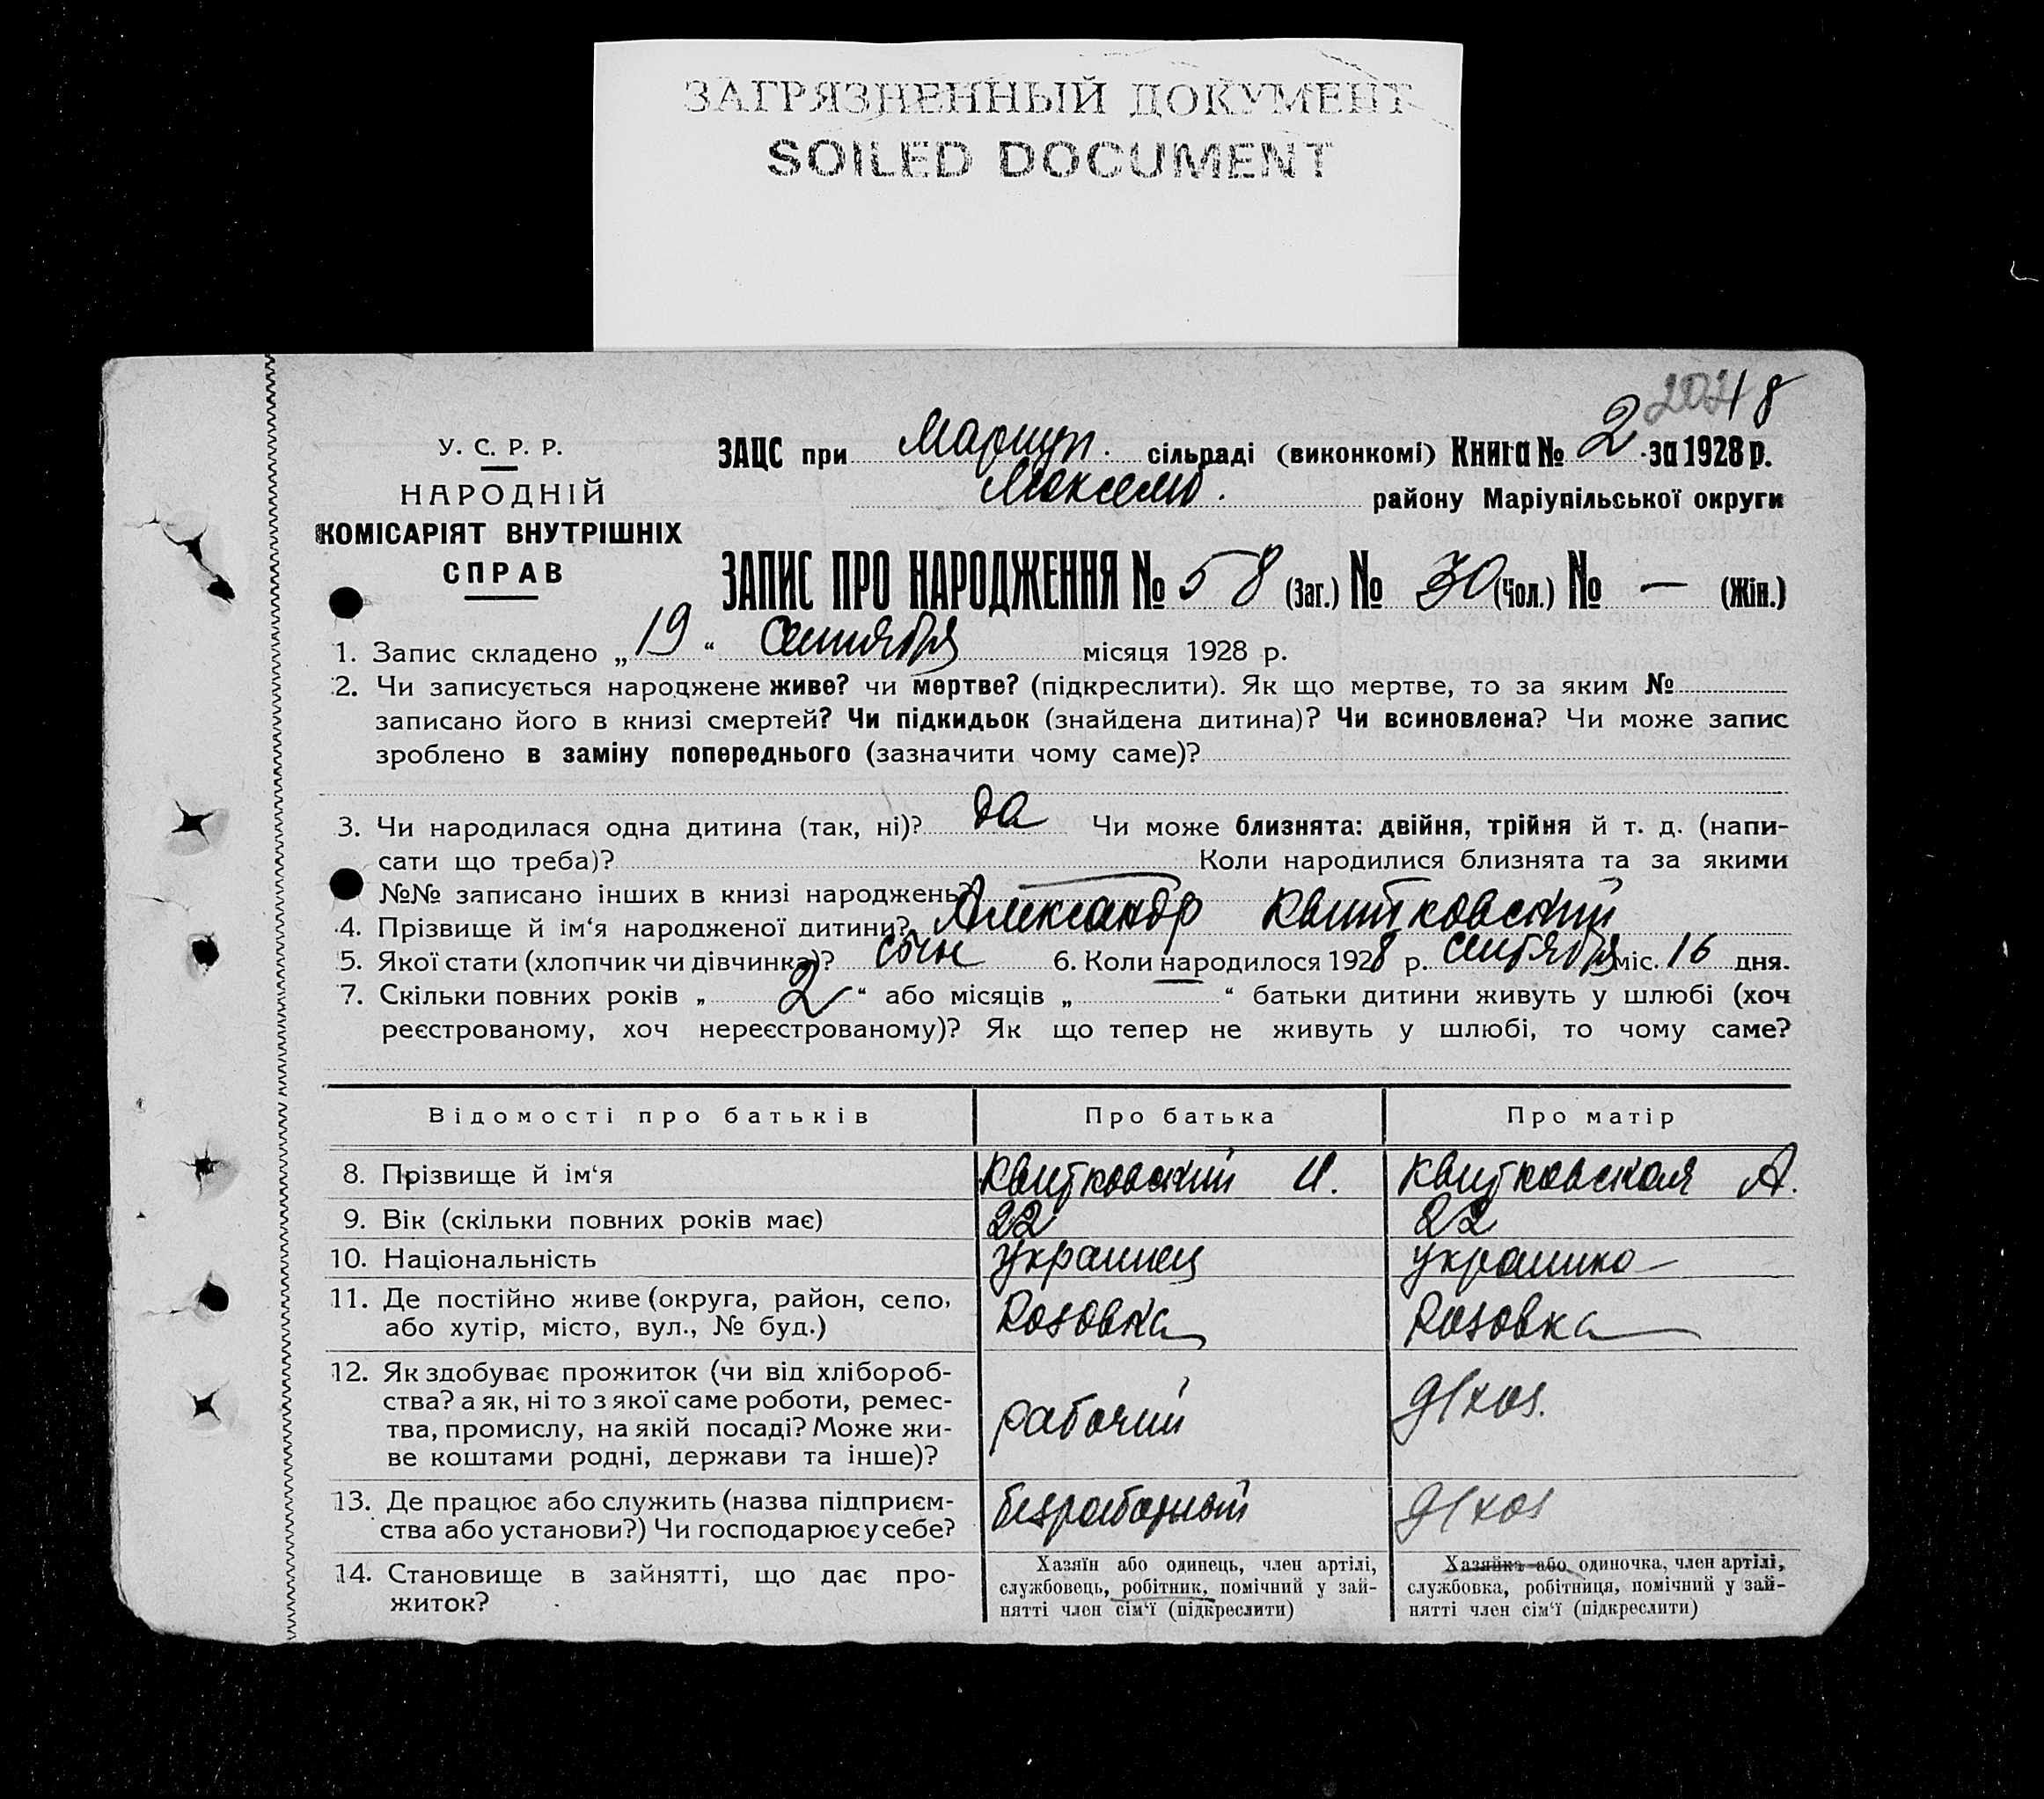 ЗАГРЯЗНЕННЫЙ ДОКУМЕНТ
SOILED DOCUMENT
18
У. С. Р. Р.
НАРОДНІЙ
КОМІСАРІЯТ ВНУТРІШНІХ
СПРАВ
ЗАЦС при Мариуп. сільраді (виконкомі) Книга № 2 за 1928 р.
району Маріупільської округи
ЗАПИС ПРО НАРОДЖЕННЯ № 58 (Заг.) № 30 (Чол.) № — (Жін.)
1. Запис складено „19“ сентября місяця 1928 р.
2. Чи записується народжене живе? чи мертве? (підкреслити). Як що мертве, то за яким №
записано його в книзі смертей? Чи підкидьок (знайдена дитина)? Чи всиновлена? Чи може запис
зроблено в заміну попереднього (зазначити чому саме)?
3. Чи народилася одна дитина (так, ні)? да Чи може близнята: двійня, трійня й т. д. (напи-
сати що треба)? Коли народилися близнята та за якими
№№ записано інших в книзі народжень?
4. Прізвище й ім‘я народженої дитини? Александр Квитковский
5. Якої стати (хлопчик чи дівчинка)? сын 6. Коли народилося 1928 р. сентября міс. 16 дня.
7. Скільки повних років „ 2 “ або місяців „ “ батьки дитини живуть у шлюбі (хоч
реєстрованому, хоч нереєстрованому)? Як що тепер не живуть у шлюбі, то чому саме?
Відомості про батьків Про батька Про матір
8. Прізвище й ім‘я Квитковский И. Квитковская А.
9. Вік (скільки повних років має) 22 22
10. Національність украинец украинка
11. Де постійно живе (округа, район, село,
або хутір, місто, вул., № буд.) Розовка Розовка
12. Як здобуває прожиток (чи від хлібороб-
ства? а як, ні то з якої саме роботи, ремес-
тва, промислу, на якій посаді? Може жи-
ве коштами родні, держави та інше)? рабочий д/хоз.
13. Де працює або служить (назва підприєм-
ства або установи?) Чи господарює у себе? безработный д/хоз
14. Становище в зайнятті, що дає про-
житок?
Хазяїн або одинець, член артілі,
службовець, робітник, помічний у зай-
нятті член сім‘ї (підкреслити)
Хазяйка або одиночка, член артілі,
службовка, робітниця, помічний у зай-
нятті член сім‘ї (підкреслити)